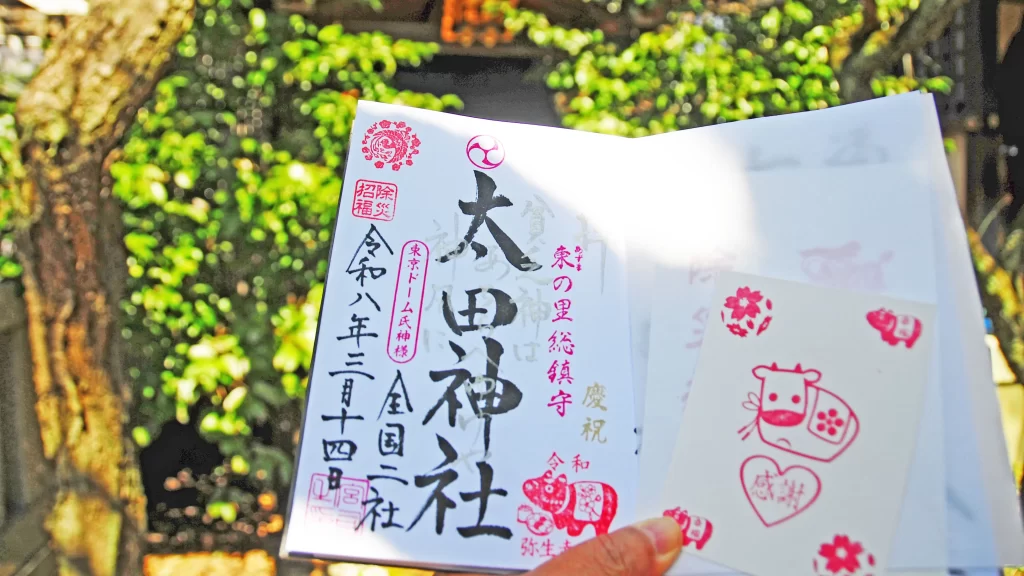 慶祝
東の里総鎮守
令和
弥生
太田神社
全国二社
東京ドーム氏神様
除災
招福
令和八年三月十四日
感謝